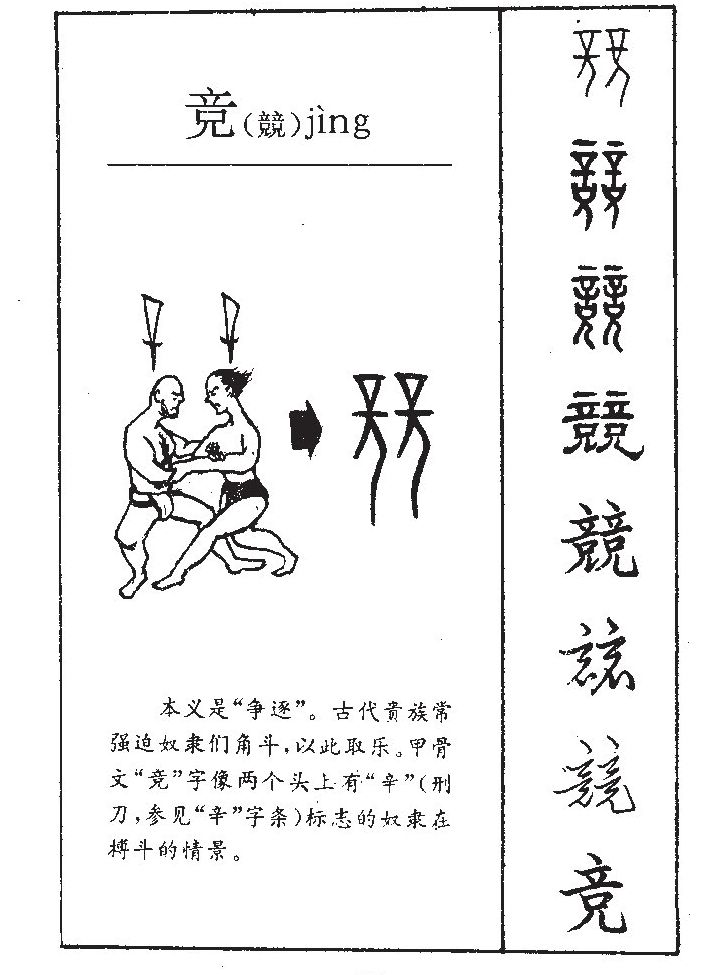 竞(競)jìng
本义是“争逐”。古代贵族常
强迫奴隶们角斗,以此取乐。甲骨
文“竞”字像两个头上有“辛”(刑
刀,参见“辛”字条)标志的奴隶在
搏斗的情景。
競
競
競
競
競
竞